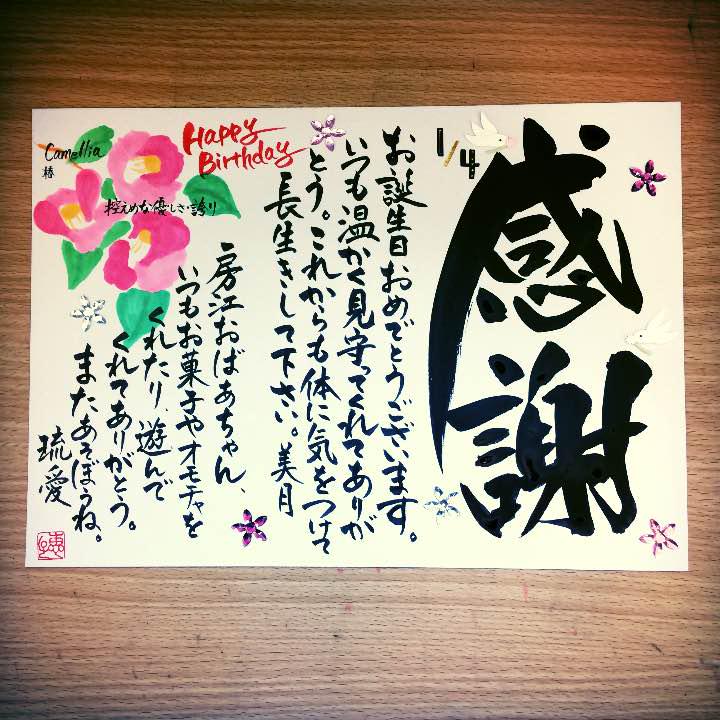 感謝
1/4
お誕生日おめでとうございます。
いつも温かく見守ってくれてありが
とう。これからも体に気をつけて
長生きして下さい。美月
Happy
Birthday
房江おばあちゃん、
いつもお菓子やオモチャを
くれたり、遊んで
くれてありがとう。
またあそぼうね。
琉愛
Camellia
椿
控えめな優しさ・誇り